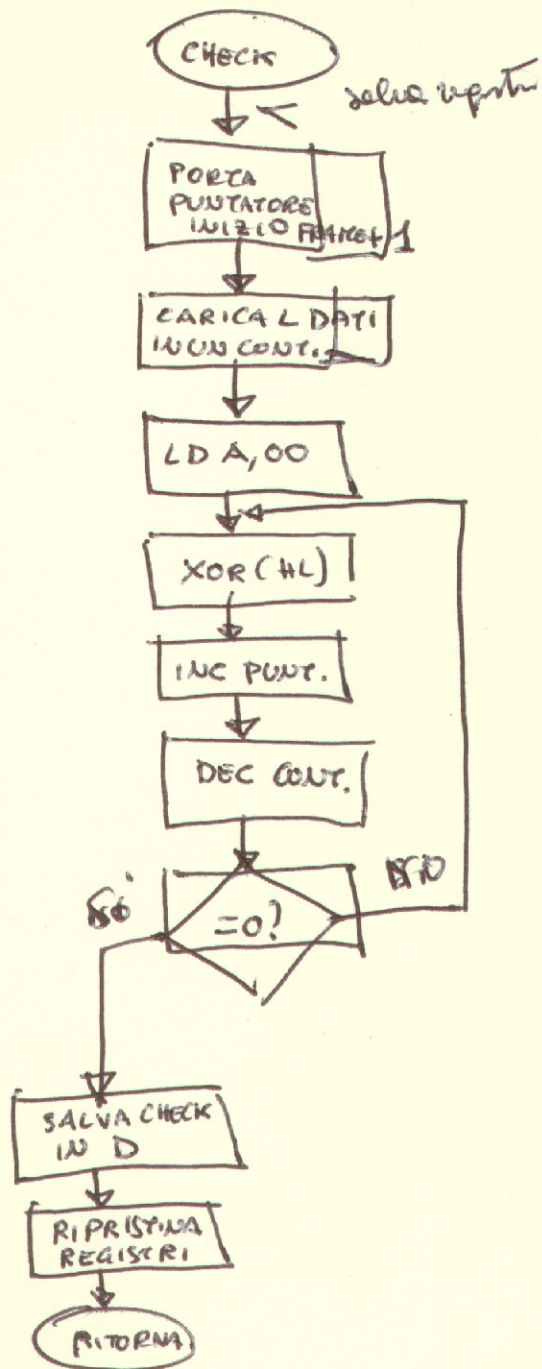 CHECK
salva registri
PORTA
PUNTATORE
INIZIO FRAME+1
CARICA L DATI
IN UN CONT.
LD A,00
XOR (HL)
INC PUNT.
DEC CONT.
NO
=0?
SALVA CHECK
IN D
RIPRISTINA
REGISTRI
RITORNA